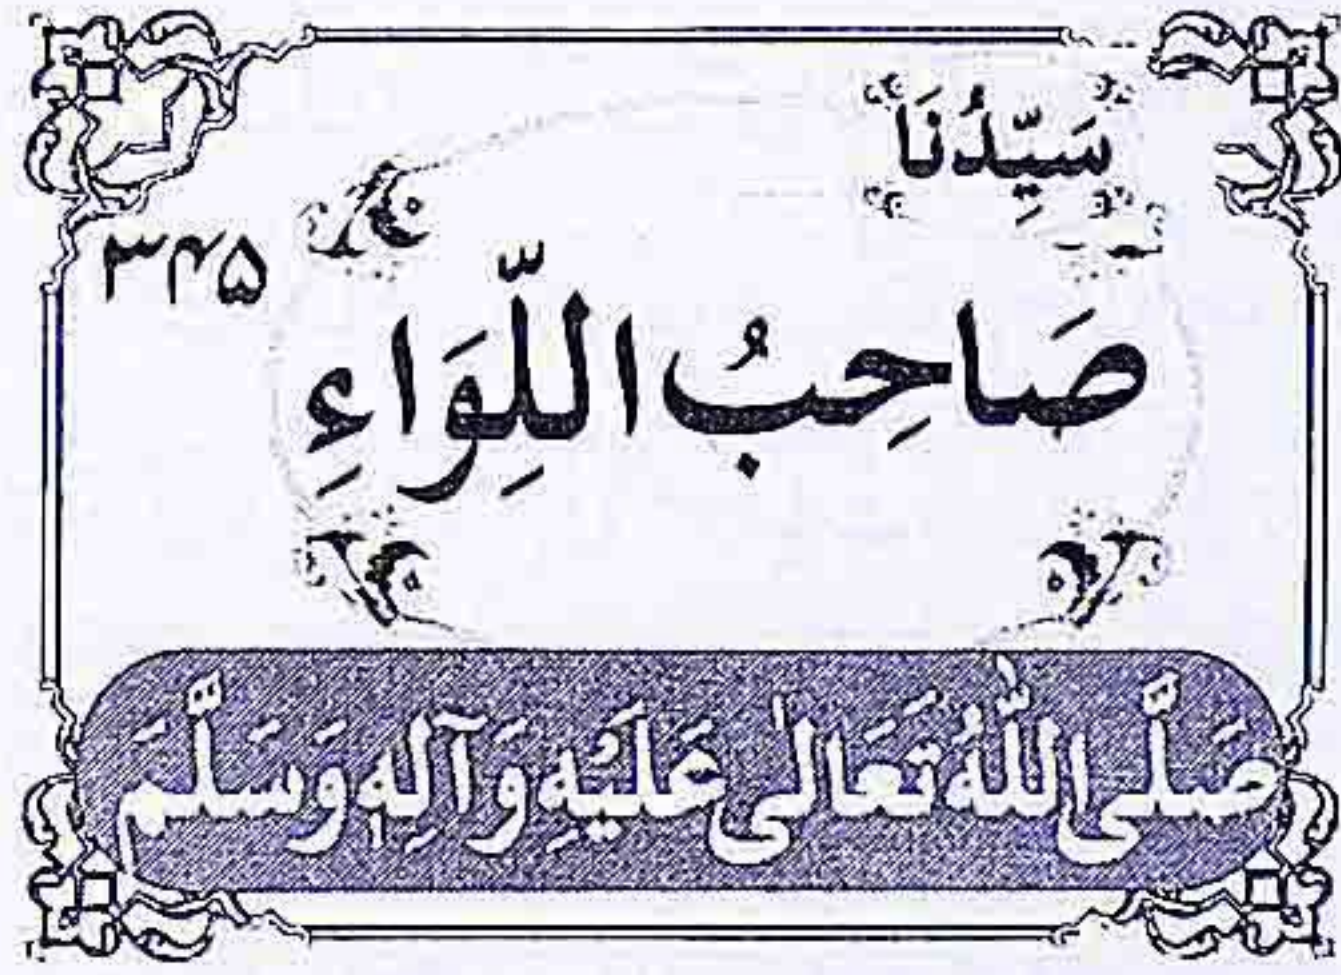 سَيِّدُنَا
۳۴۵
صَاحِبُ اللِّوَاءِ
صَلَّى اللّٰهُ تَعَالٰى عَلَيْهِ وَآلِهٖ وَسَلَّمَ